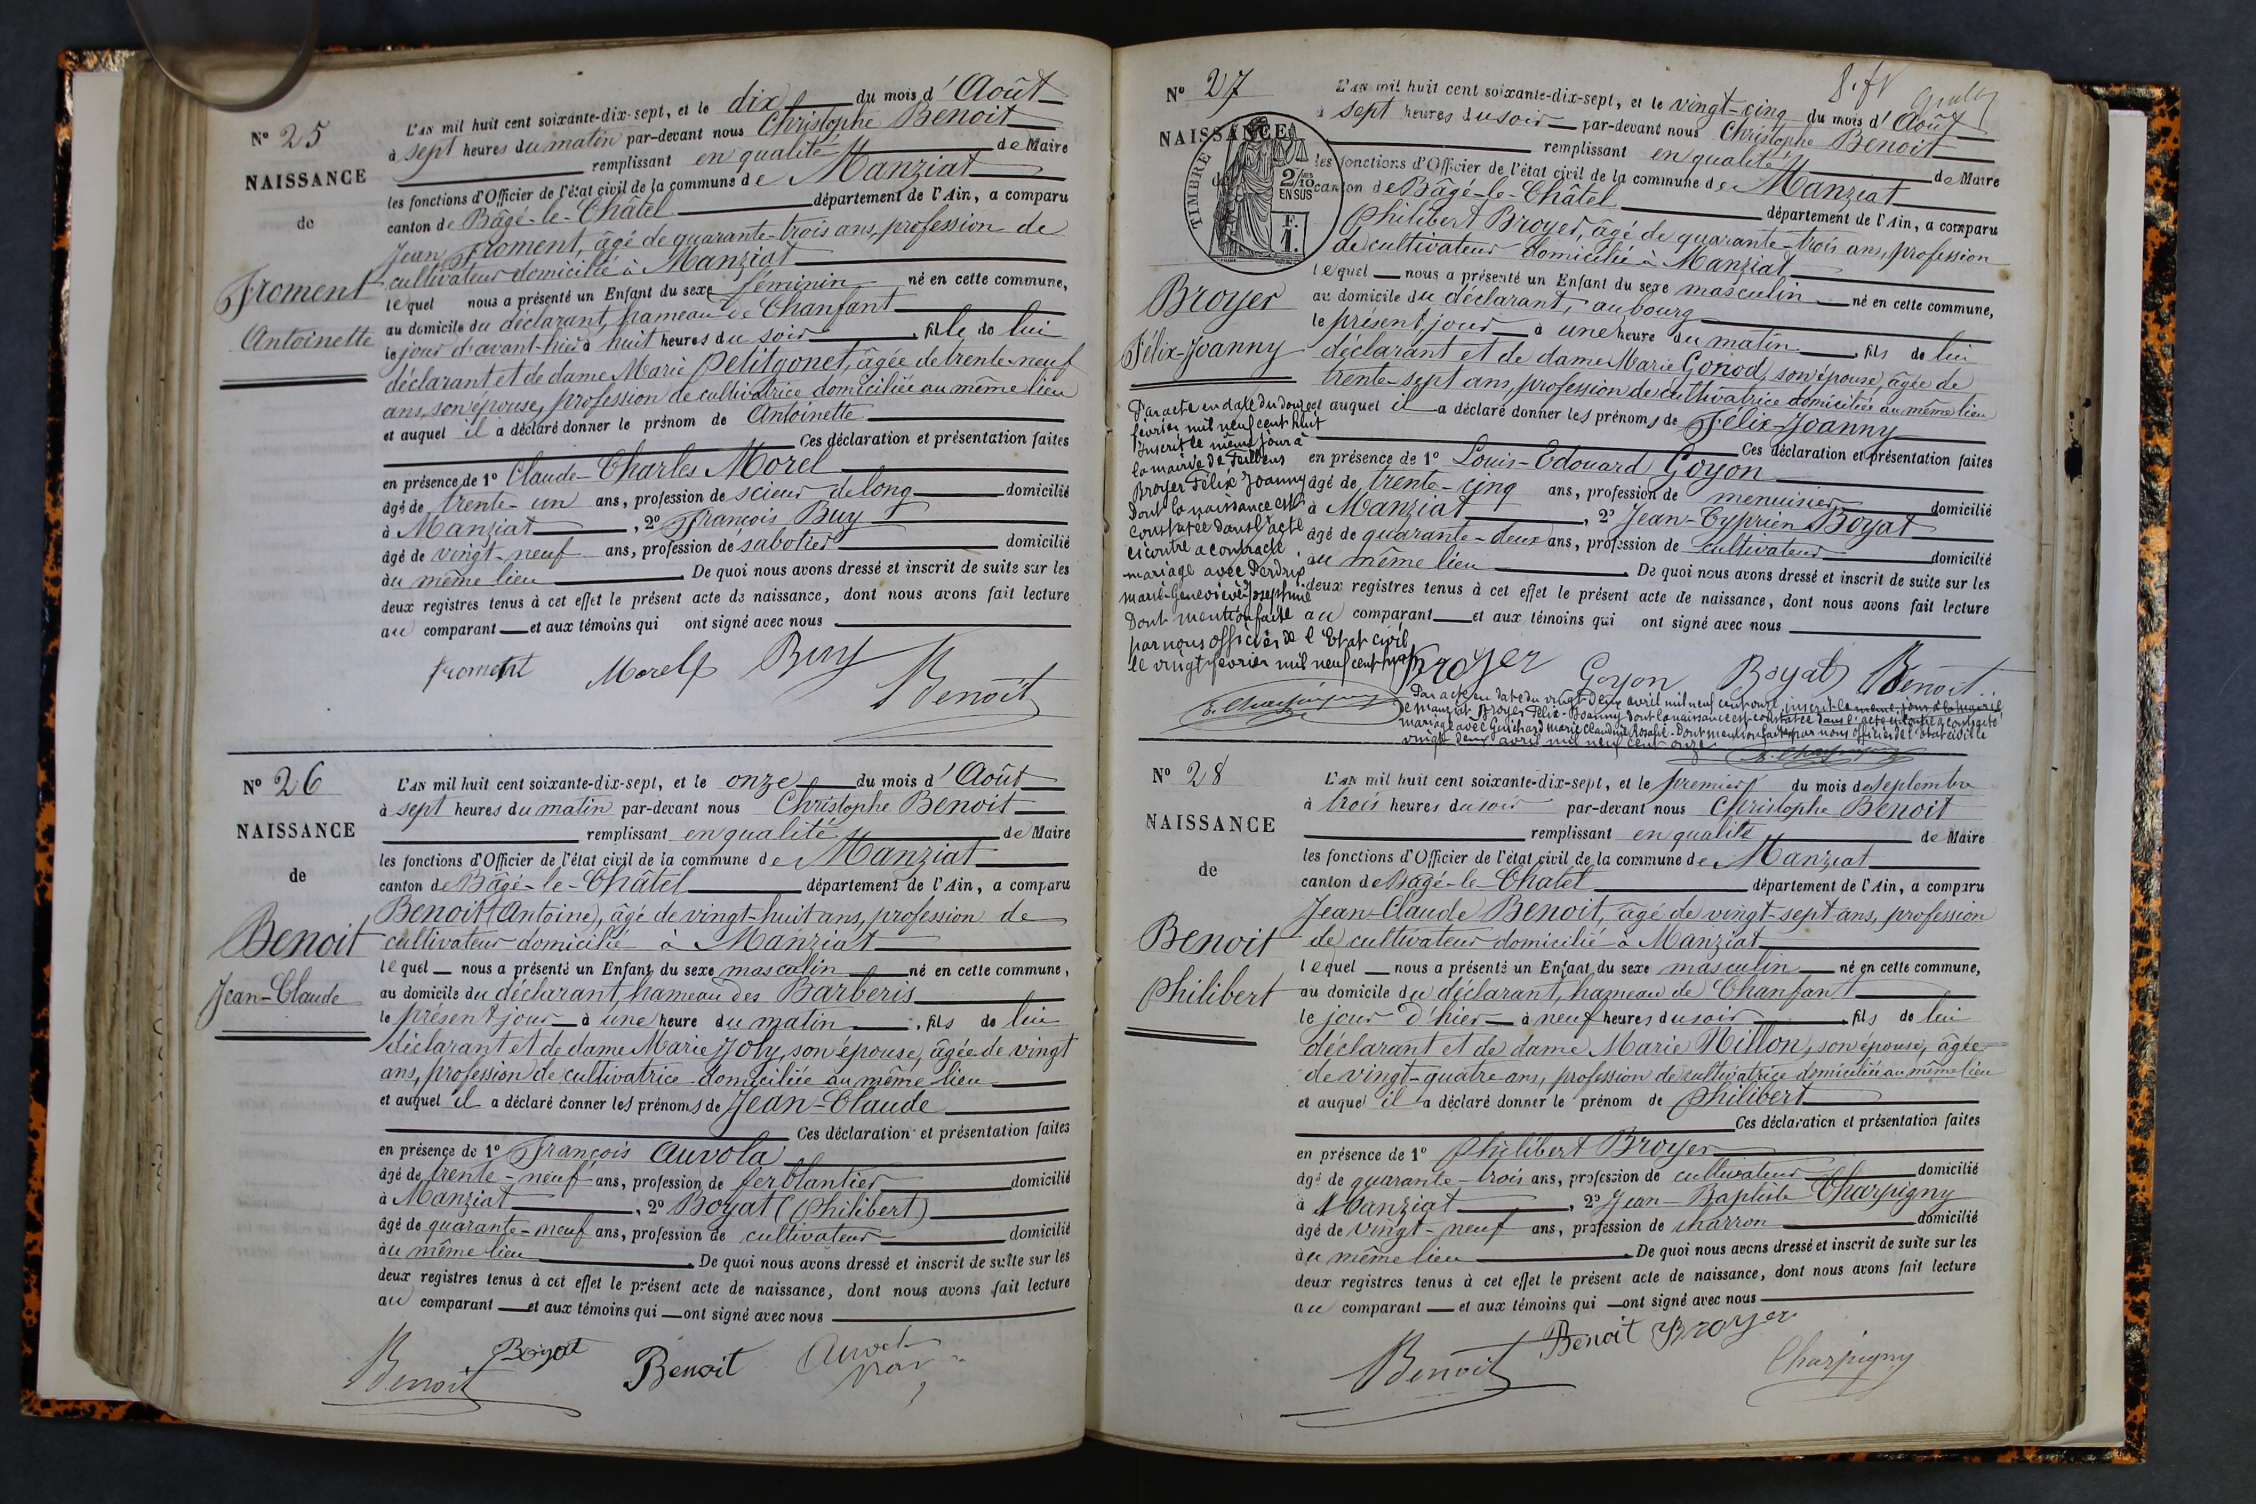 N° 25
NAISSANCE
de
Froment
Antoinette
L'AN mil huit cent soixante-dix-sept, et le dix du mois d'Août
à sept heures du matin par-devant nous Christophe Benoit
remplissant en qualité de Maire
les fonctions d'Officier de l'état civil de la commune de Manziat
canton de Bâgé-le-Châtel département de l'Ain, a comparu
Jean Froment, âgé de quarante-trois ans, profession de
cultivateur domicilié à Manziat
lequel nous a présenté un Enfant du sexe féminin né en cette commune,
au domicile du déclarant, hameau de Chanfant
le jour d'avant-hier à huit heures du soir, fille de lui
déclarant et de dame Marie Petitgonet, âgée de trente-neuf
ans, son épouse, profession de cultivatrice domiciliée au même lieu
et auquel il a déclaré donner le prénom de Antoinette
Ces déclaration et présentation faites
en présence de 1° Claude-Charles Morel
âgé de trente-un ans, profession de scieur de long domicilié
à Manziat, 2° François Buy
âgé de vingt-neuf ans, profession de sabotier domicilié
au même lieu. De quoi nous avons dressé et inscrit de suite sur les
deux registres tenus à cet effet le présent acte de naissance, dont nous avons fait lecture
au comparant et aux témoins qui ont signé avec nous
froment Morel Buy
Benoit
N° 26
NAISSANCE
de
Benoit
Jean-Claude
L'AN mil huit cent soixante-dix-sept, et le onze du mois d'Août
à sept heures du matin par-devant nous Christophe Benoit
remplissant en qualité de Maire
les fonctions d'Officier de l'état civil de la commune de Manziat
canton de Bâgé-le-Châtel département de l'Ain, a comparu
Benoit (Antoine), âgé de vingt-huit ans, profession de
cultivateur domicilié à Manziat
lequel nous a présenté un Enfant du sexe masculin né en cette commune,
au domicile du déclarant, hameau des Barberis
le présent jour à une heure du matin, fils de lui
déclarant et de dame Marie Joly, son épouse, âgée de vingt
ans, profession de cultivatrice domiciliée au même lieu
et auquel il a déclaré donner les prénoms de Jean-Claude
Ces déclaration et présentation faites
en présence de 1° François Auvola
âgé de trente-neuf ans, profession de ferblantier domicilié
à Manziat, 2° Boyat (Philibert)
âgé de quarante-neuf ans, profession de cultivateur domicilié
au même lieu. De quoi nous avons dressé et inscrit de suite sur les
deux registres tenus à cet effet le présent acte de naissance, dont nous avons fait lecture
au comparant et aux témoins qui ont signé avec nous
Benoit Boyat Benoit
N° 27
NAISSANCE
TIMBRE
2/10 EN SUS
F. 1.
Broyer
Félix-Joanny
L'AN mil huit cent soixante-dix-sept, et le vingt-cinq du mois d'Août
à sept heures du soir par-devant nous Christophe Benoit
remplissant en qualité de Maire
les fonctions d'Officier de l'état civil de la commune de Manziat
canton de Bâgé-le-Châtel département de l'Ain, a comparu
Philibert Broyer, âgé de quarante-trois ans, profession
de cultivateur domicilié à Manziat
lequel nous a présenté un Enfant du sexe masculin né en cette commune,
au domicile du déclarant, au bourg
le présent jour à une heure du matin, fils de lui
déclarant et de dame Marie Gonod, son épouse, âgée de
trente-sept ans, profession de cultivatrice domiciliée au même lieu
et auquel il a déclaré donner les prénoms de Félix-Joanny
Ces déclaration et présentation faites
en présence de 1° Louis-Edouard Goyon
âgé de trente-cinq ans, profession de menuisier domicilié
à Manziat, 2° Jean-Cyprien Boyat
âgé de quarante-deux ans, profession de cultivateur domicilié
au même lieu. De quoi nous avons dressé et inscrit de suite sur les
deux registres tenus à cet effet le présent acte de naissance, dont nous avons fait lecture
au comparant et aux témoins qui ont signé avec nous
Par acte en date du douze
février mil neuf cent huit
Inscrit le même jour à
la mairie de Feillens
Broyer Félix Joanny
Dont la naissance est
constatée dans l'acte
ci contre a contracté
mariage avec Perdrix
marie-Geneviève-Josephine
Dont mention faite
par nous officier de l'Etat civil
le vingt février mil neuf cent huit
Broyer Goyon Boyat Benoit
Par acte en date du vingt-deux avril mil neuf cent onze, inscrit le même jour à la mairie
de manziat Broyer Félix-Joanny dont la naissance est constatée dans l'acte ci contre a contracté
mariage avec Guichard marie Claudine Rosalie. Dont mention faite par nous officier de l'état civil le
vingt deux avril mil neuf cent onze
N° 28
NAISSANCE
de
Benoit
Philibert
L'AN mil huit cent soixante-dix-sept, et le premier du mois de Septembre
à trois heures du soir par-devant nous Christophe Benoit
remplissant en qualité de Maire
les fonctions d'Officier de l'état civil de la commune de Manziat
canton de Bagé-le-Chatel département de l'Ain, a comparu
Jean-Claude Benoit, âgé de vingt-sept ans, profession
de cultivateur domicilié à Manziat
lequel nous a présenté un Enfant du sexe masculin né en cette commune,
au domicile du déclarant, hameau de Chanfant
le jour d'hier à neuf heures du soir, fils de lui
déclarant et de dame Marie Nillon, son épouse, âgée
de vingt-quatre ans, profession de cultivatrice domiciliée au même lieu
et auquel il a déclaré donner le prénom de Philibert
Ces déclaration et présentation faites
en présence de 1° Philibert Broyer
âgé de quarante-trois ans, profession de cultivateur domicilié
à Manziat, 2° Jean-Baptiste Charpigny
âgé de vingt-neuf ans, profession de charron domicilié
au même lieu. De quoi nous avons dressé et inscrit de suite sur les
deux registres tenus à cet effet le présent acte de naissance, dont nous avons fait lecture
au comparant et aux témoins qui ont signé avec nous
Benoit Benoit Broyer
Charpigny